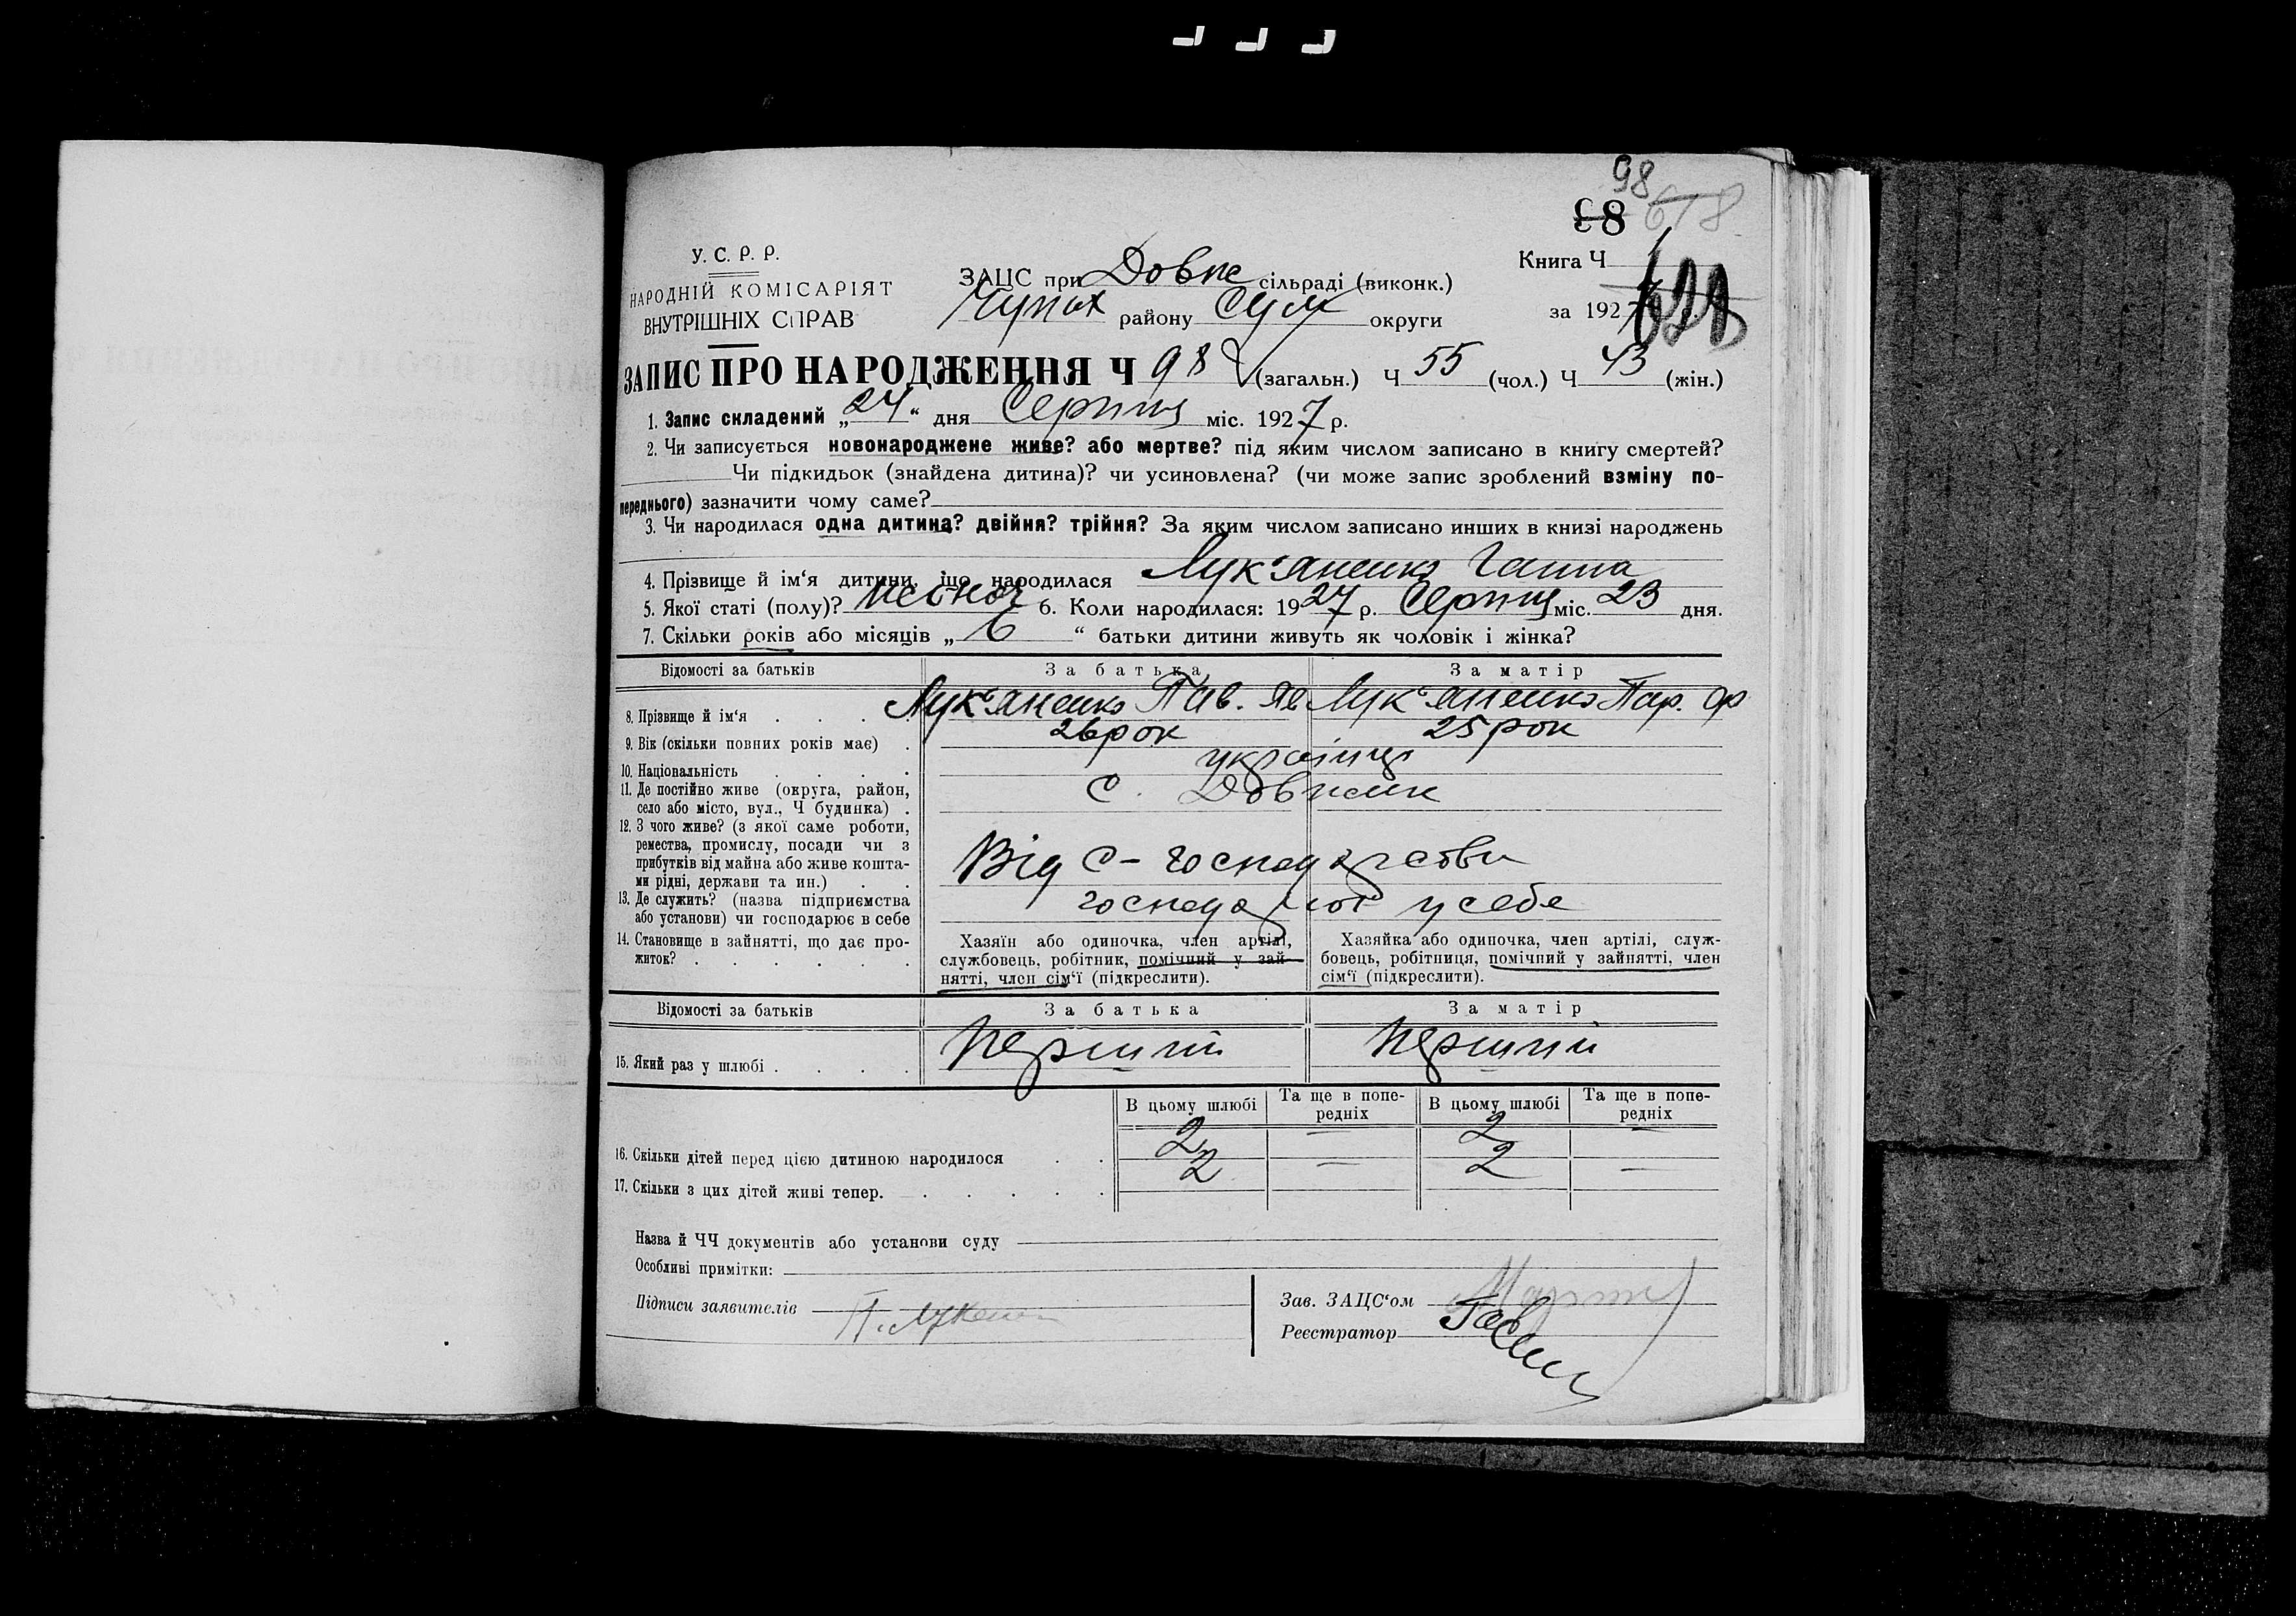 98
€8 678
У. С. Р. Р.
НАРОДНІЙ КОМІСАРІЯТ
ВНУТРІШНІХ СПРАВ
ЗАЦС при Довже сільраді (виконк.)
Чупах району Сум округи
Книга Ч 1
за 1927
ЗАПИС ПРО НАРОДЖЕННЯ Ч 98 (загальн.) Ч 55 (чол.) Ч 43 (жін.)
1. Запис складений „24“ дня Серпня міс. 1927 р.
2. Чи записується новонароджене живе? або мертве? під яким числом записано в книгу смертей?
Чи підкидьок (знайдена дитина)? чи усиновлена? (чи може запис зроблений взміну по-
переднього) зазначити чому саме?
3. Чи народилася одна дитина? двійня? трійня? За яким числом записано инших в книзі народжень
4. Прізвище й ім‘я дитини, що народилася Лук‘яненко Ганна
5. Якої статі (полу)? жіноч 6. Коли народилася: 1927 р. Серпня міс. 23 дня.
7. Скільки років або місяців „6“ батьки дитини живуть як чоловік і жінка?
Відомості за батьків За батька За матір
8. Прізвище й ім‘я Лук‘яненко Пав. Як Лук‘яненко Пар. Ф
9. Вік (скільки повних років має) 26 рок 25 рок
10. Національність україн
11. Де постійно живе (округа, район,
село або місто, вул., Ч будинка) С. Довжик
12. З чого живе? (з якої саме роботи,
ремества, промислу, посади чи з
прибутків від майна або живе кошта-
ми рідні, держави та ин.) Від с-господарства
13. Де служить? (назва підприємства
або установи) чи господарює в себе господарют у себе
14. Становище в зайнятті, що дає про-
житок?
Хазяїн або одиночка, член артілі,
службовець, робітник, помічний у зай-
нятті, член сім‘ї (підкреслити).
Хазяйка або одиночка, член артілі, служ-
бовець, робітниця, помічний у зайнятті, член
сім‘ї (підкреслити).
Відомості за батьків За батька За матір
15. Який раз у шлюбі перший перший
В цьому шлюбі Та ще в попе-
редніх В цьому шлюбі Та ще в попе-
редніх
16. Скільки дітей перед цією дитиною народилося 2 — 2 —
17. Скільки з цих дітей живі тепер. 2 — 2 —
Назва й ЧЧ документів або установи суду
Особливі примітки:
Підписи заявителів
Зав. ЗАЦС‘ом
Реєстратор